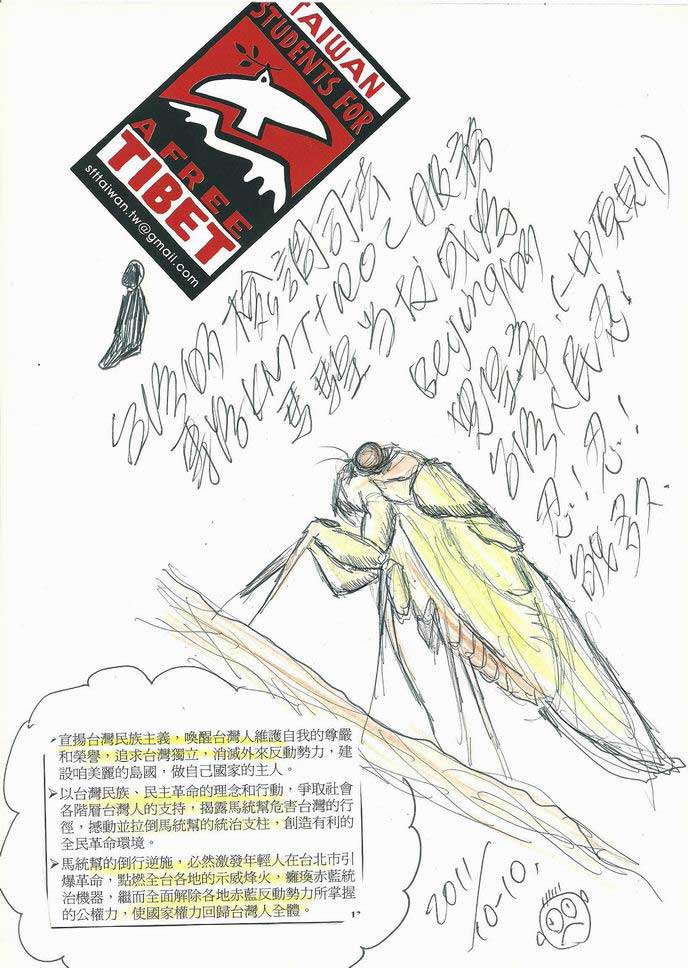 TAIWAN
STUDENTS FOR
A FREE
TIBET
sfttaiwan.tw@gmail.com
台灣的檢調司法
專為KMT+ROC服務
馬騜
Beijing的
(一中原則)
台灣人民忍!
忍!忍!
能多久.
➤宣揚台灣民族主義,喚醒台灣人維護自我的尊嚴
和榮譽,追求台灣獨立,消滅外來反動勢力,建
設咱美麗的島國,做自己國家的主人。
➤以台灣民族、民主革命的理念和行動,爭取社會
各階層台灣人的支持,揭露馬統幫危害台灣的行
徑,撼動並拉倒馬統幫的統治支柱,創造有利的
全民革命環境。
➤馬統幫的倒行逆施,必然激發年輕人在台北市引
爆革命,點燃全台各地的示威烽火,癱瘓赤藍統
治機器,繼而全面解除各地赤藍反動勢力所掌握
的公權力,使國家權力回歸台灣人全體。
2011/
10-10.